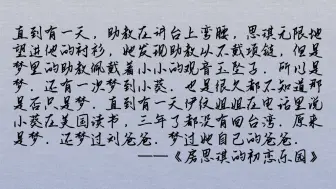 直到有一天，助教在讲台上弯腰，思琪无限地
望进他的衬衫，她发现助教从不戴项链，但是
梦里的助教佩戴着小小的观音玉坠子．所以是
梦．还有一次梦到小葵．也是很久都不知道那
是否只是梦．直到有一天伊纹姐姐在电话里说
小葵在美国读书，三年了都没有回台湾．原来
是梦．还梦过刘爸爸．梦过她自己的爸爸．
——《房思琪的初恋乐园》